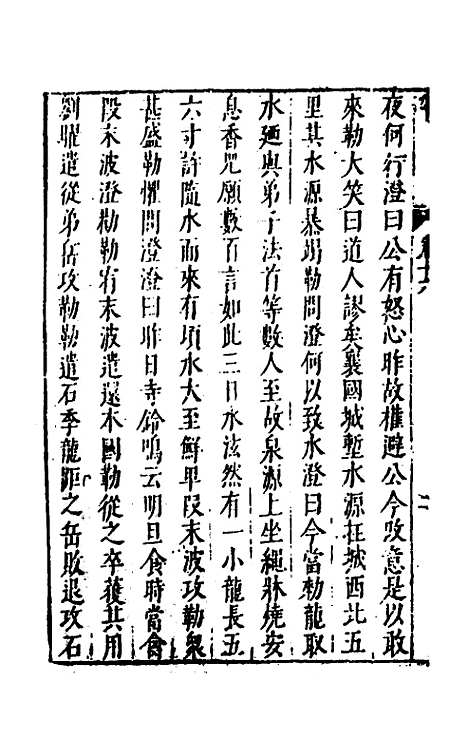 夜何行澄曰公有怒心昨故權避公今改意是以敢
來勒大笑曰道人謬矣襄國城塹水源在城西北五
里其水源暴竭勒問澄何以致水澄曰今當勑龍取
水廼與弟子法首等數人至故泉源上坐繩牀燒安
息香咒願數百言如此三日水泫然有一小龍長五
六寸許隨水而來有頃水大至鮮卑段末波攻勒衆
甚盛勒懼問澄澄曰昨日寺鈴鳴云明旦食時當禽
段末波澄勑勒宥末波遣還本國勒從之卒獲其用
劉曜遣從弟岳攻勒勒遣石季龍距之岳敗退攻石